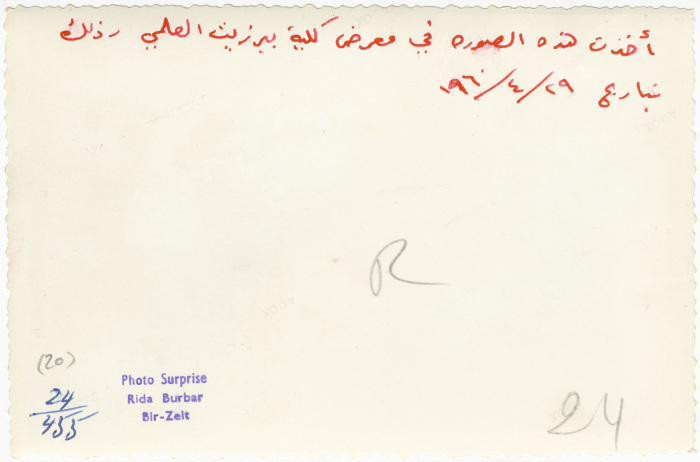 أخذت هذه الصوره في معرض كلية بيرزيت العلمي وذلك
بتاريخ ٢٩/٤/١٩٦٠
R
(20)
24/455
Photo Surprise
Rida Burbar
Bir-Zeit
24